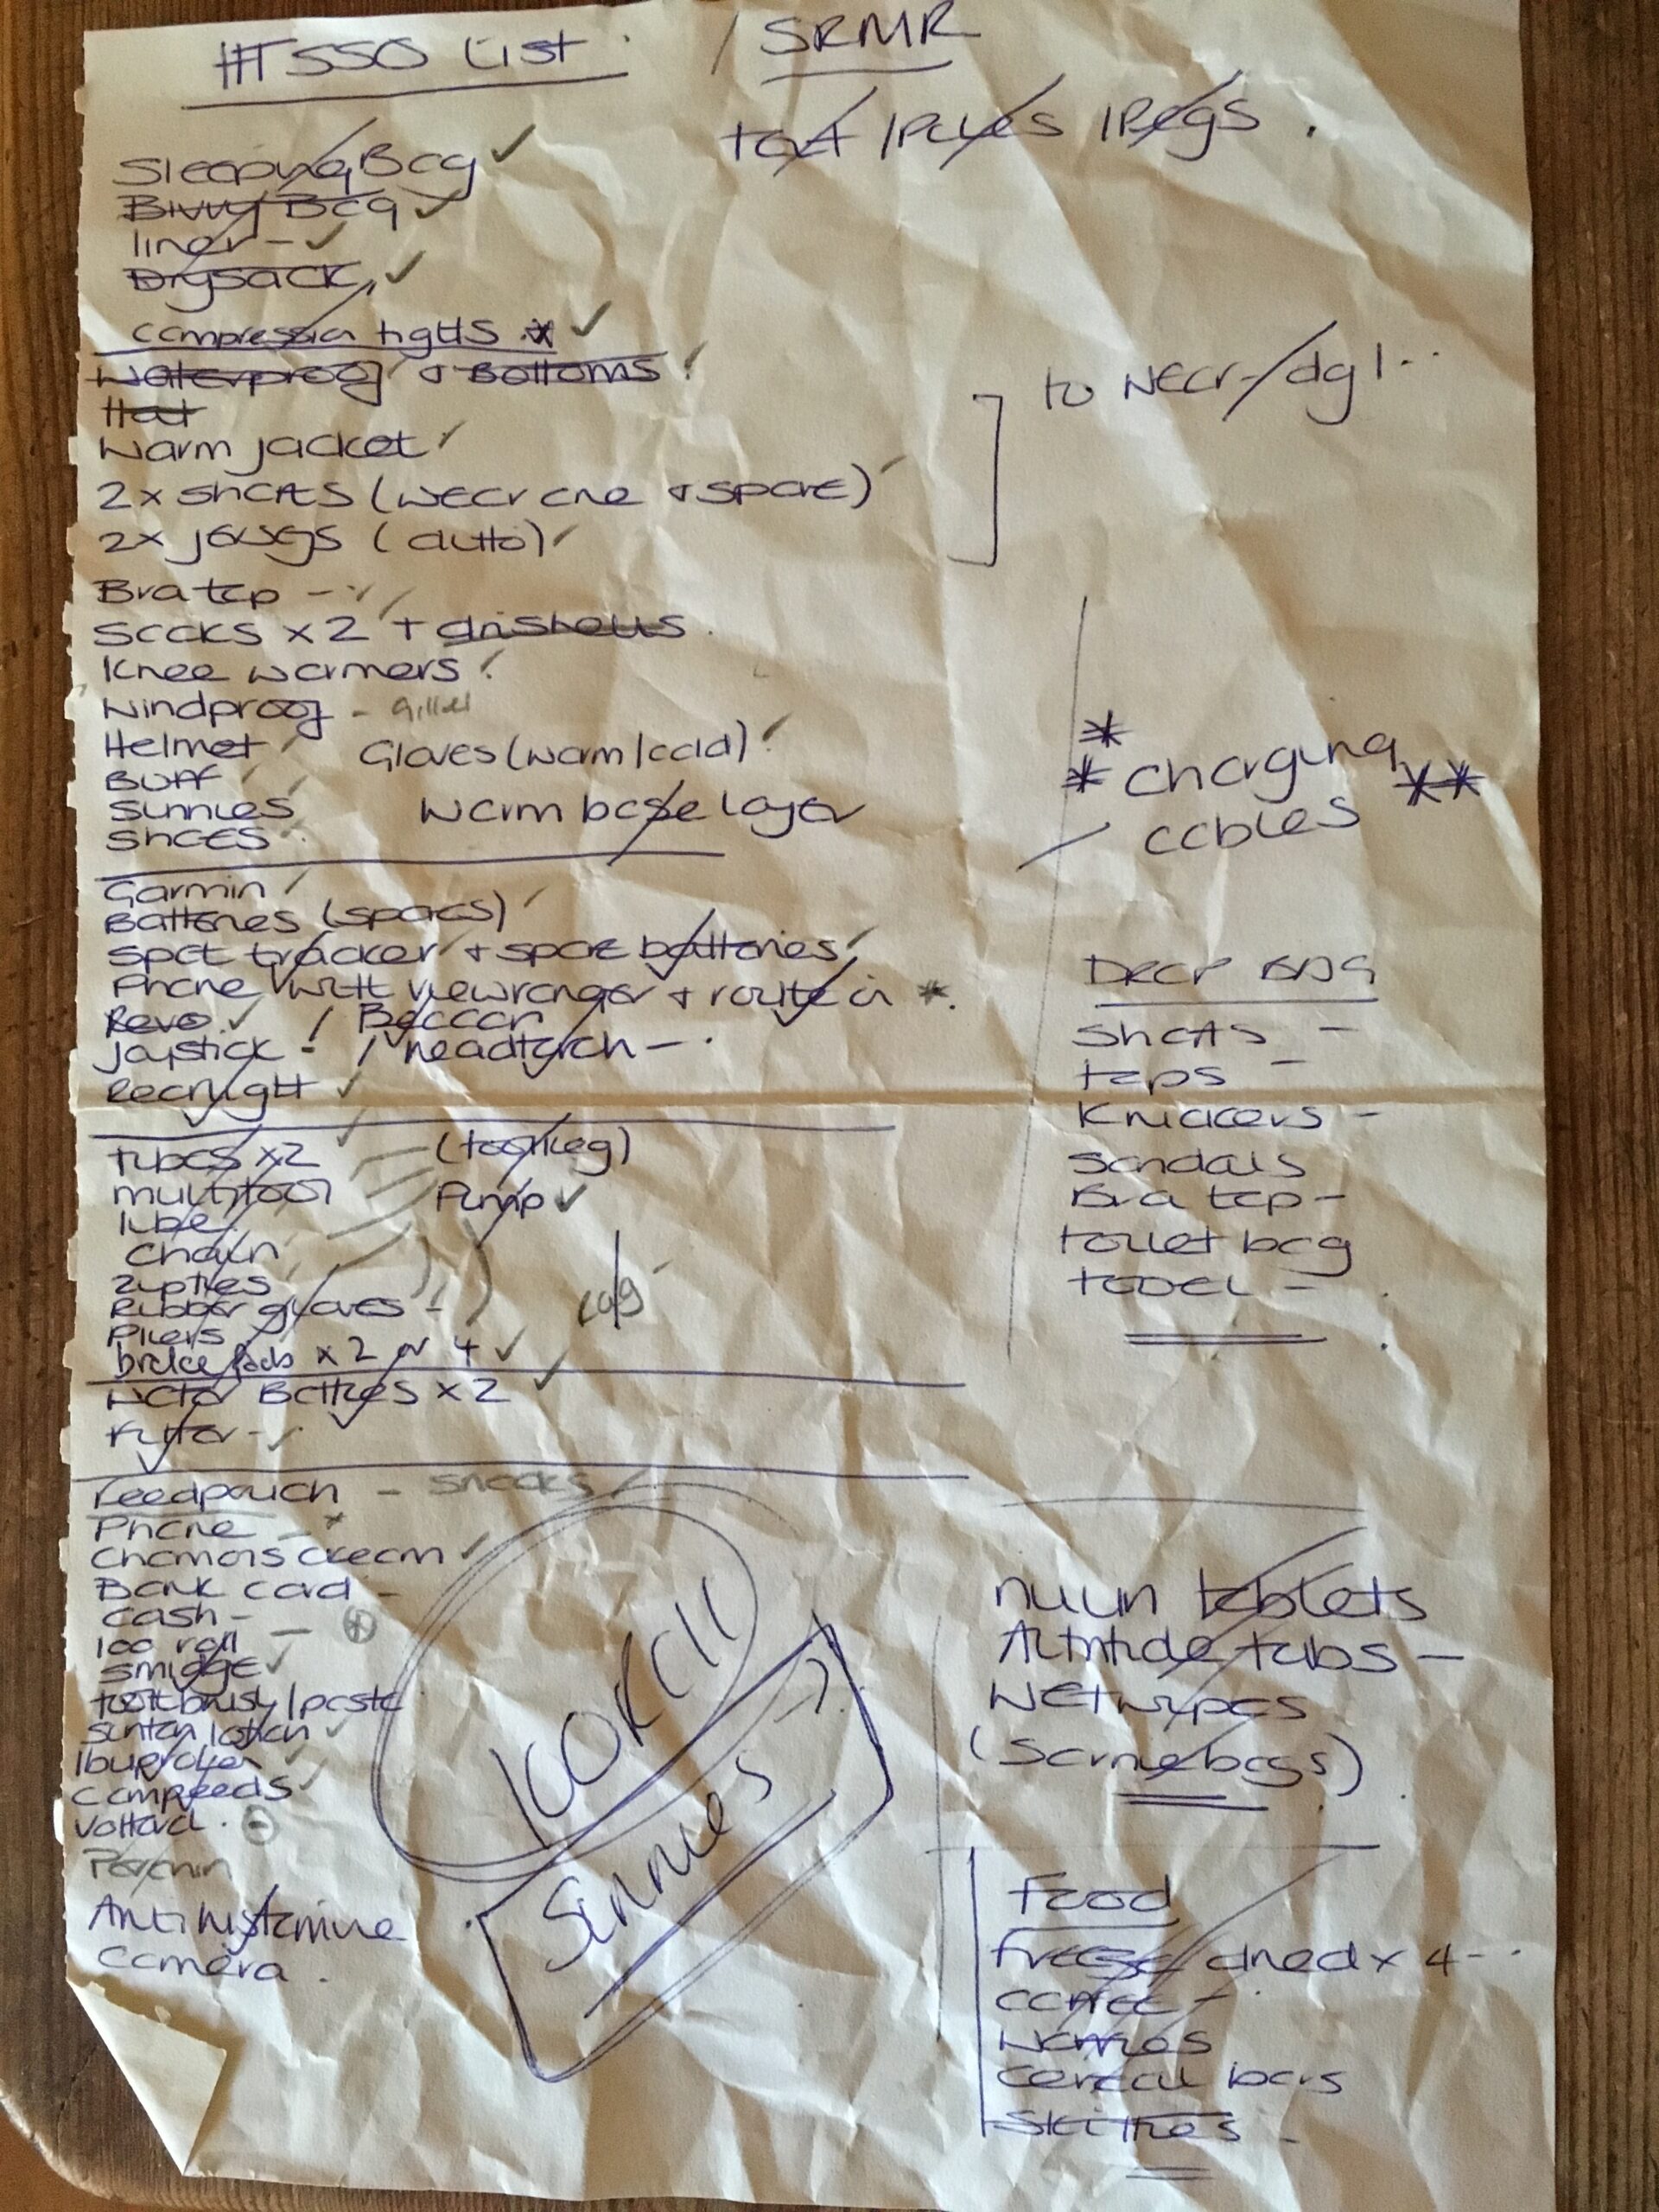 HT550 List / SRMR
tent / Poles / Pegs
Sleeping Bag
Bivvy Bag
liner -
Drysack
compression tights *
Waterproof + Bottoms
Hat
Warm jacket
2x shorts (wear one + spare)
2x jerseys (ditto)
to wear/
Bra top -
socks x 2 +
Knee warmers
Windproof - Gillet
Helmet Gloves (warm/cold)
Buff
Sunnies Warm base layer
Shoes
* * charging **
cables
Garmin
Batteries (spares)
Spot tracker + spare batteries
Phone with viewranger + route on *
Revo / Beacon
Joystick - / headtorch -
Rearlight
tubes x2 - (tool keg)
multitool Pump
lube
Chain
zipties
Rubber gloves -
Pliers
brake pads x 2 or 4
Water Bottles x 2
Filter -
DROP BAG
Shorts -
tops -
Knickers -
Sandals
Bra top -
toilet bag
towel -
Feedpouch - snacks
Phone - *
Chamois cream
Bank card -
cash -
loo roll -
smidge
toothbrush/paste
suntan lotion
Ibuprofen
compeeds
Voltarol
Antihistamine
Camera
KORRII
Sinnes
nuun tablets
Altitude tabs -
Wetwipes
(Sarnie bags)
Food
Freeze dried x 4 -
coffee -
Waffles
Cereal bars
Skittles -